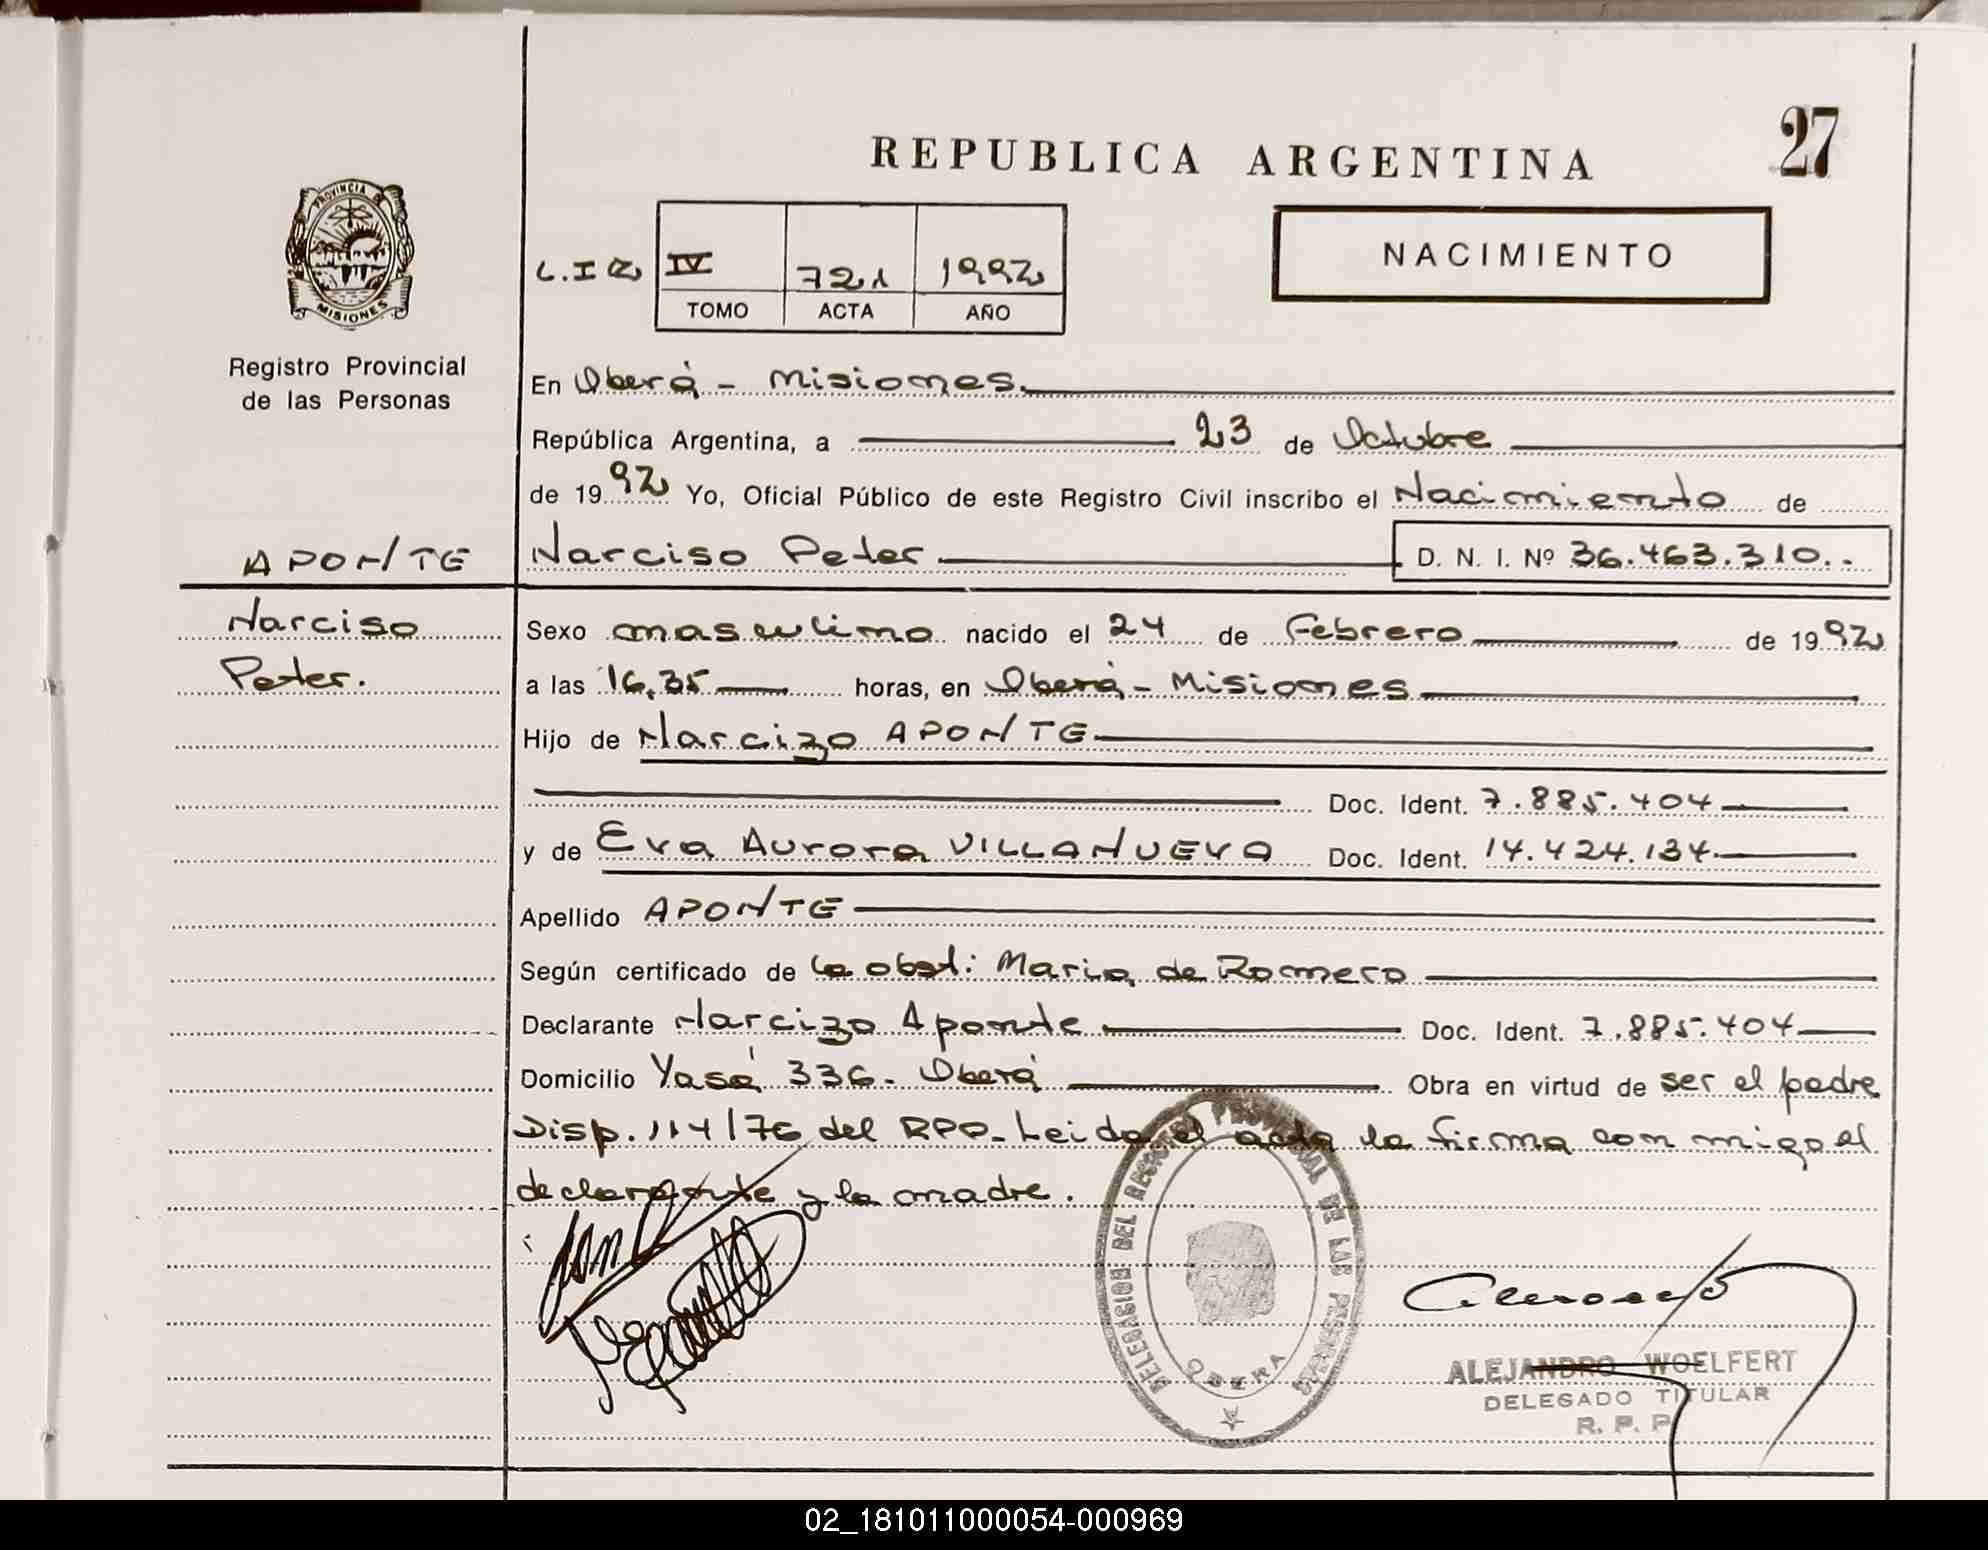 REPUBLICA ARGENTINA
27
PROVINCIA
MISIONES
Registro Provincial
de las Personas
NACIMIENTO
IV 721 1992
TOMO ACTA AÑO
En Oberá - Misiones.
República Argentina, a 23 de Octubre
de 1992 Yo, Oficial Público de este Registro Civil inscribo el Nacimiento de
APONTE
Narciso Peter D. N. I. Nº 36.463.310..
Narciso
Peter.
Sexo masculino nacido el 24 de Febrero de 1992
a las 16,35 horas, en Oberá - Misiones
Hijo de Narcizo APONTE
Doc. Ident. 7.885.404
y de Eva Aurora VILLANUEVA Doc. Ident. 14.424.134
Apellido APONTE
Según certificado de la obst: Maria de Romero
Declarante Narcizo Aponte Doc. Ident. 7.885.404
Domicilio Yasá 336 - Oberá Obra en virtud de ser el padre
Disp. 114/76 del RPP - Leida el acta la firma con migo el
declarante y la madre.
DELEGASION DEL REGISTRO PROVINCIAL DE LAS PERSONAS
OBERA
ALEJANDRO WOELFERT
DELEGADO TITULAR
R. P. P
02_181011000054-000969